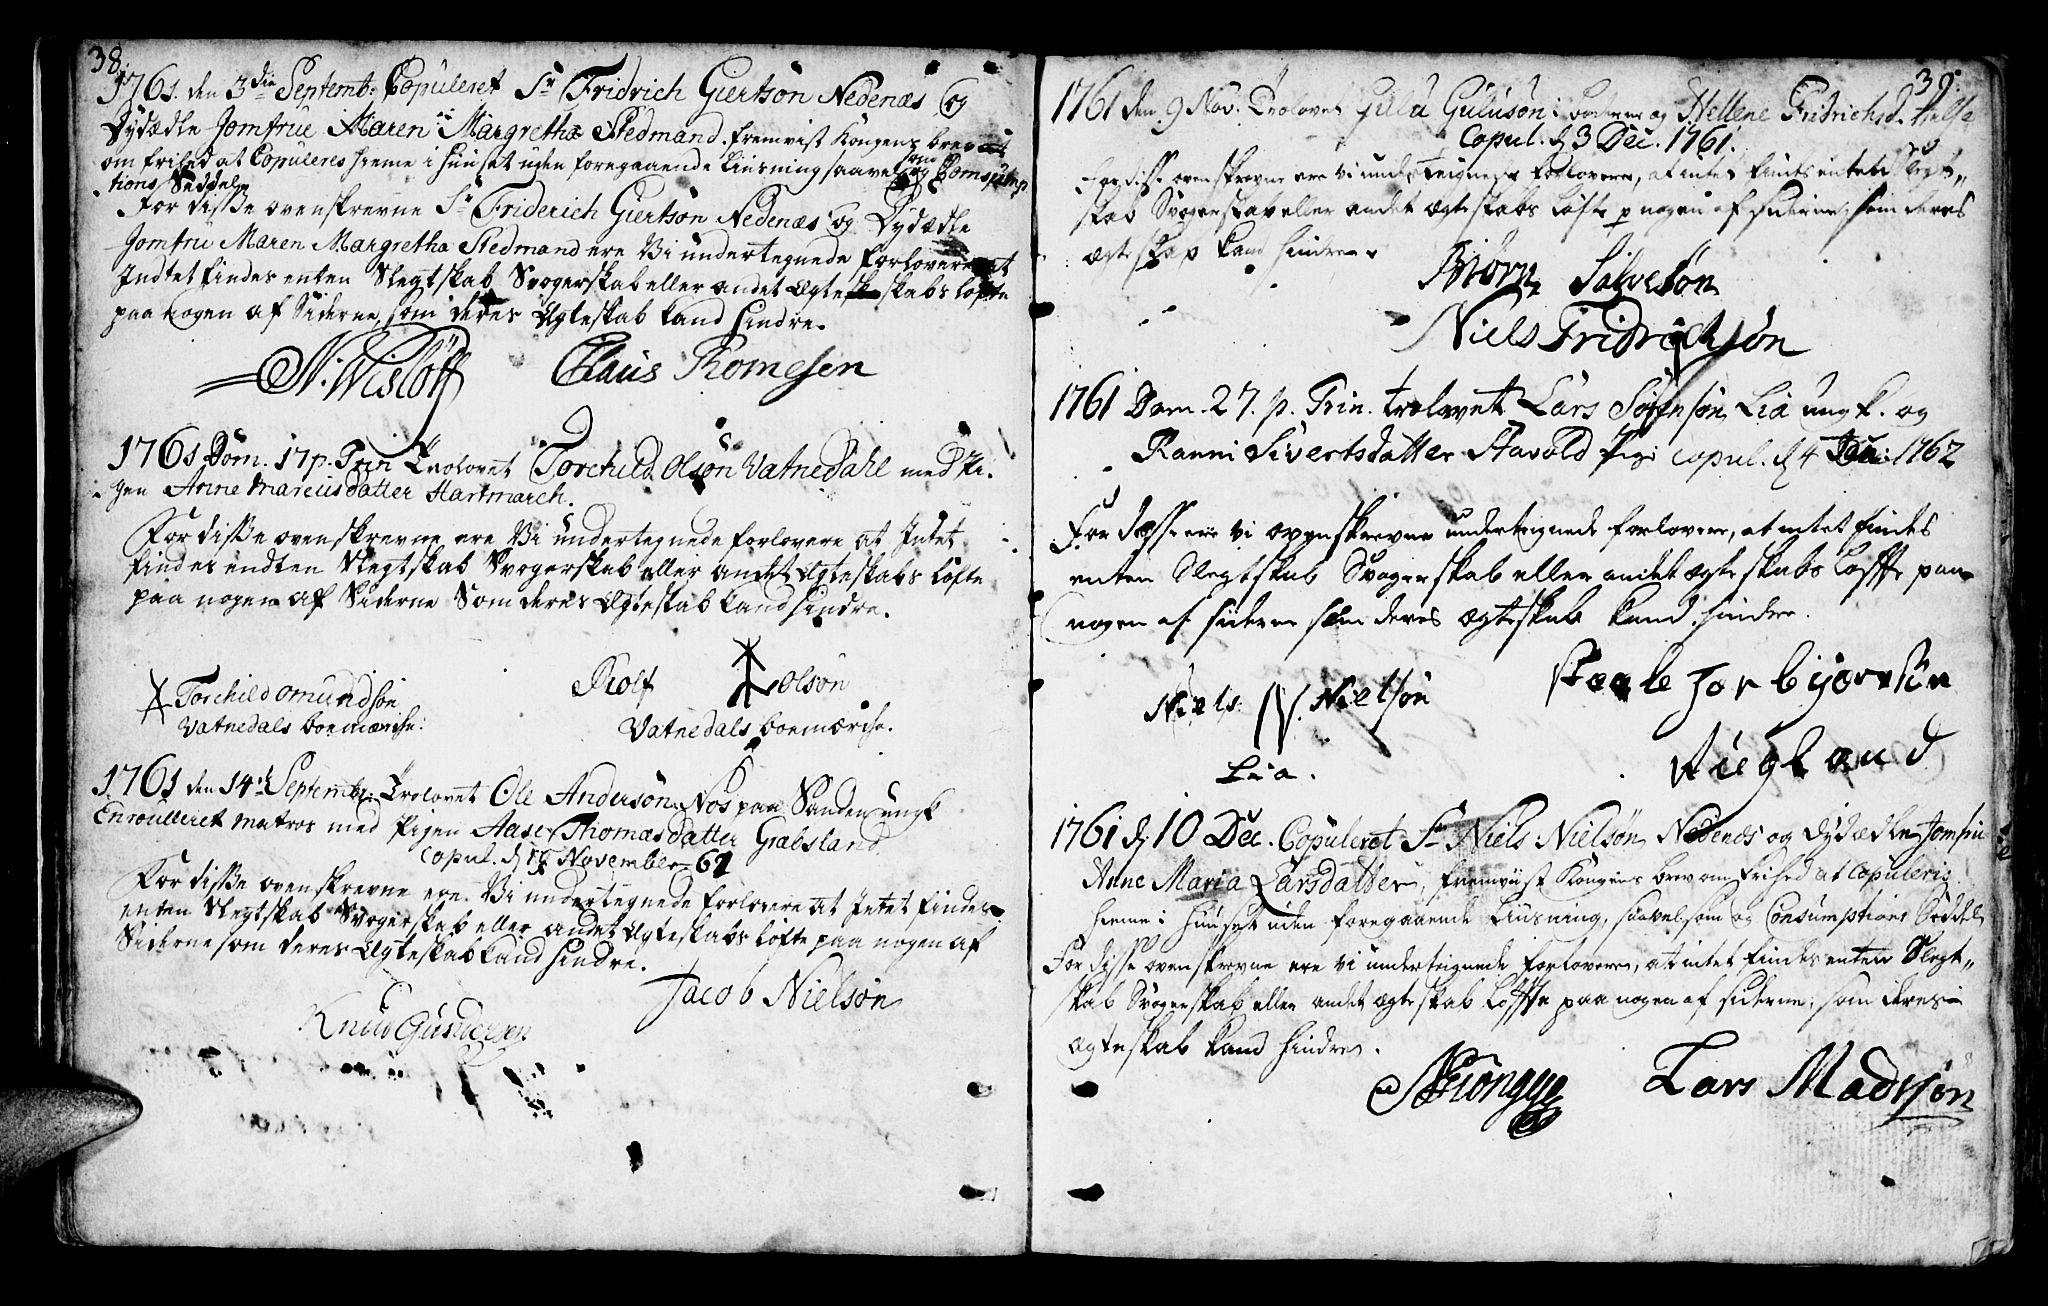 38.
1761. den 3die Septemb: Copuleret Sr Fridrich Giertsön Nedenæs og
Dydædle Jomfrue Maren Margretha Stedmand. fremvist Kongens brev
om frihed at Copuleres hieme i huuset uden foregaaende Liusning saavel som og Comsump
tions Seddel
For disse ovenskrevne Sr Friderich Giertsön Nedenæs og Dydædle
Jomfrú Maren Margretha Stedmand ere Vi undertegnede forlovere at
Indtet findes enten Slegtskab Svogerskab eller andet Ægte skabs løfte
paa nogen af Siderne, som deres Ægteskab kand hindre.
N: Wislöff Claus Thomesen
1761 Dom. 17 p. Trin Trolovet Torchild Olsön Vatnedahl med Pi-
gen Anne Marcusdatter Hartmarch.
For disse ovenskrevne ere Vi undertegnede forlovere at Intet
findes endten Slegtskab Svogerskab eller andet Ægteskabs løfte
paa nogen af Siderne Som deres Ægteskab kand hindre.
Torchild omundsön Rolf Olsön
Vatnedals boemærche: Vatnedals boemærche.
1761 den 14de Septembr: Trolovet Ole Andersön Nos paa Sanden ungk
Enroulleret matros med Pigen Aase Thomasdatter Grabsland
copul. d November 61
For disse ovenskrevne ere Vi undertegnede forlovere at Intet findes
enten Slegtskab Svogerskab eller andet Ægteskabs løfte paa nogen af
Siderne som deres Ægteskab kand hindre.
Jacob Nielsön
Knud Gundersen
39.
1761 den 9 Nov: Trolovet Gulusön og Hellene Fridrichsd.
Copul. d 3 Dec. 1761.
For disse ovenskrevne ere vi underteignede forlovere, at intet findes enten Slegt„
skab Svogerskab eller andet ægteskabs løfte p nogen af siderne, som deres
ægteskap kand hindre.
Biörn Salvesön
Niels Fridrichsön
1761 Dom. 27. p. Trin. trolovet Lars Sörensön Lia ungk. og
Ranni Sivertsdatter Stavold Pige copul. d 4 1762
For disse ere vi ovenskrevne underteignede forlovere, at intet findes
enten Slegtskab Svogerskab eller andet ægteskabs Løffte paa
nogen af siderne som deres ægteskab kand hindre.
Niels N. Nielsön
Lia.
Staale Torbiørnsen
1761 d 10 Dec. Copuleret Sr Niels Nielsön Nedenes og dydædle Jomfru
Anne Maria Larsdatter, fremviist Kongens brev om Frihed at Copuleris
hieme i Huuset uden foregaaende Liusning, saavelsom og Consumptions Seddel
For disse ovenskrevne ere vi underteignede forlovere, at intet findes enten Slegt„
skab Svogerskab eller andet ægteskab Løffte paa nogen af siderne, som deres
ægteskab kand hindre.
Lars Madssön